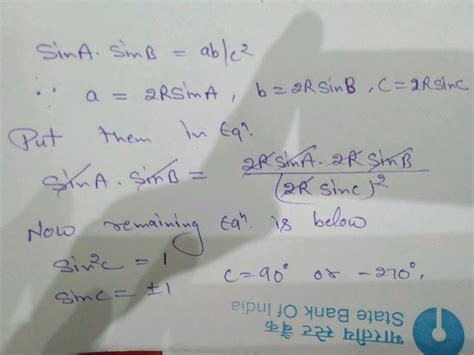 SinA. SinB = ab/c²
∵ a = 2RSinA, b=2RSinB, C=2RSinc
Put them in Eqⁿ.
SinA . SinB = 2R SinA. 2R SinB / (2R Sinc)²
Now remaining Eqⁿ is below
Sin²c = 1
Sinc = ±1 C=90° or -270°.
भारतीय स्टेट बैंक
State Bank Of India